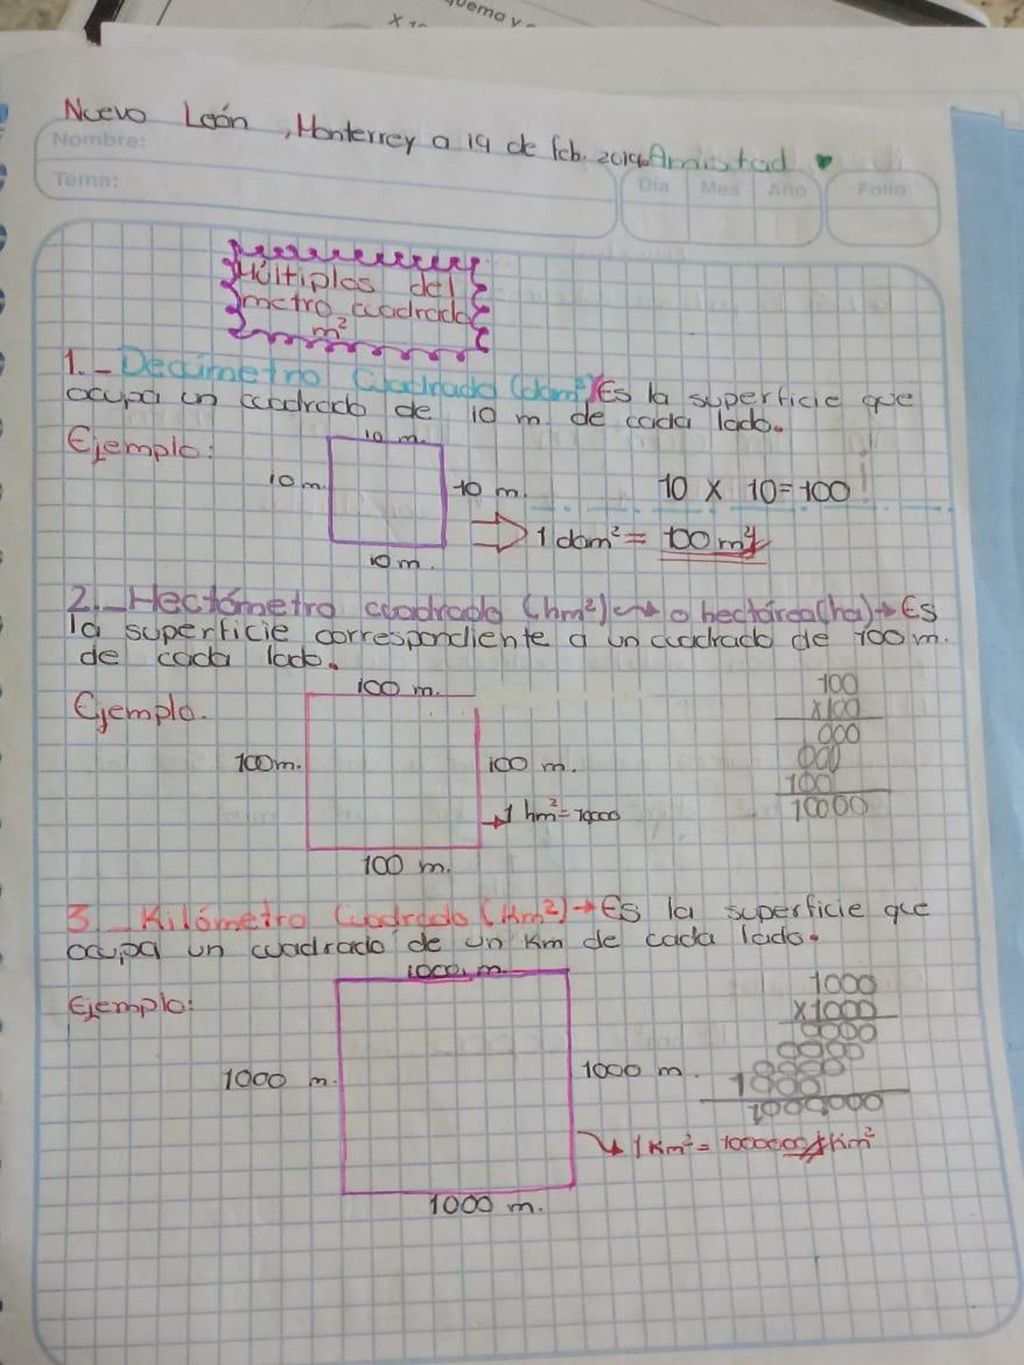 uema y
Nuevo León, Monterrey a 19 de feb. 2019. Amistad
Nombre:
Tema:
Día Mes Año Folio
Múltiplos del
metro cuadrado
m²
1.- Decámetro Cuadrado (dam²) Es la superficie que
ocupa un cuadrado de 10 m de cada lado.
Ejemplo:
10 m.
10 m.
10 m.
10 x 10=100
1 dam² = 100 m²
10 m.
2.- Hectómetro cuadrado (hm²) → o hectárea(ha) → Es
la superficie correspondiente a un cuadrado de 100 m.
de cada lado.
100 m.
Ejemplo.
100m.
100 m.
1 hm²= 10000
100 m.
100
x100
000
000
100
10000
3.- Kilómetro Cuadrado (Km²) → Es la superficie que
ocupa un cuadrado de un Km de cada lado.
1000 m.
Ejemplo:
1000 m.
1000 m.
1000
x1000
0000
0000
0000
1000
1000000
1 Km² = 1000000 Km²
1000 m.